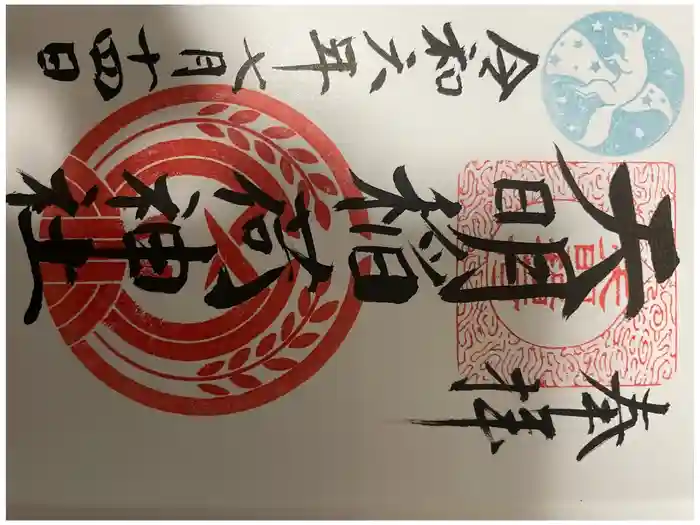 奉拝
天 稲荷神社
令和六年七月十四日